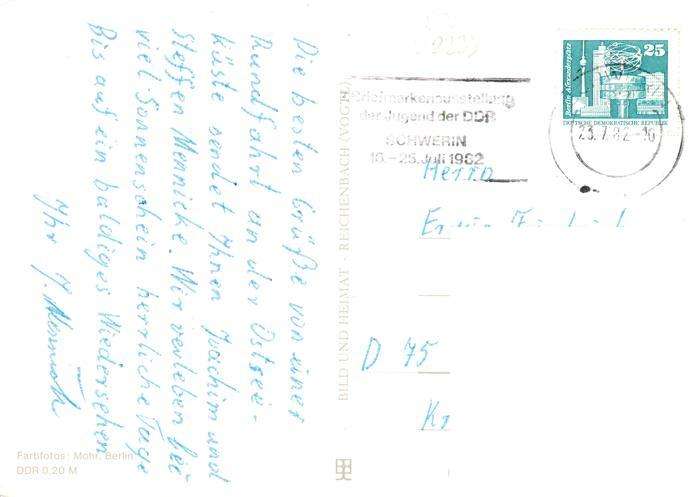 Die besten Grüße von einer
Rundfahrt an der Ostsee-
küste sendet Ihnen Joachim und
Steffen Mennicke. Wir verleben bei
viel Sonnenschein herrliche Tage
Bis auf ein baldiges Wiedersehen
Ihr J. Mennicke
Farbfotos: Mohr, Berlin
DDR 0,20 M
BILD UND HEIMAT - REICHENBACH (VOGTL)
Briefmarkenausstellung
der Jugend der DDR
SCHWERIN
16.-25. Juli 1982
Berlin, Alexanderplatz
25
DEUTSCHE DEMOKRATISCHE REPUBLIK
23.7.82-16
Herrn
D 75